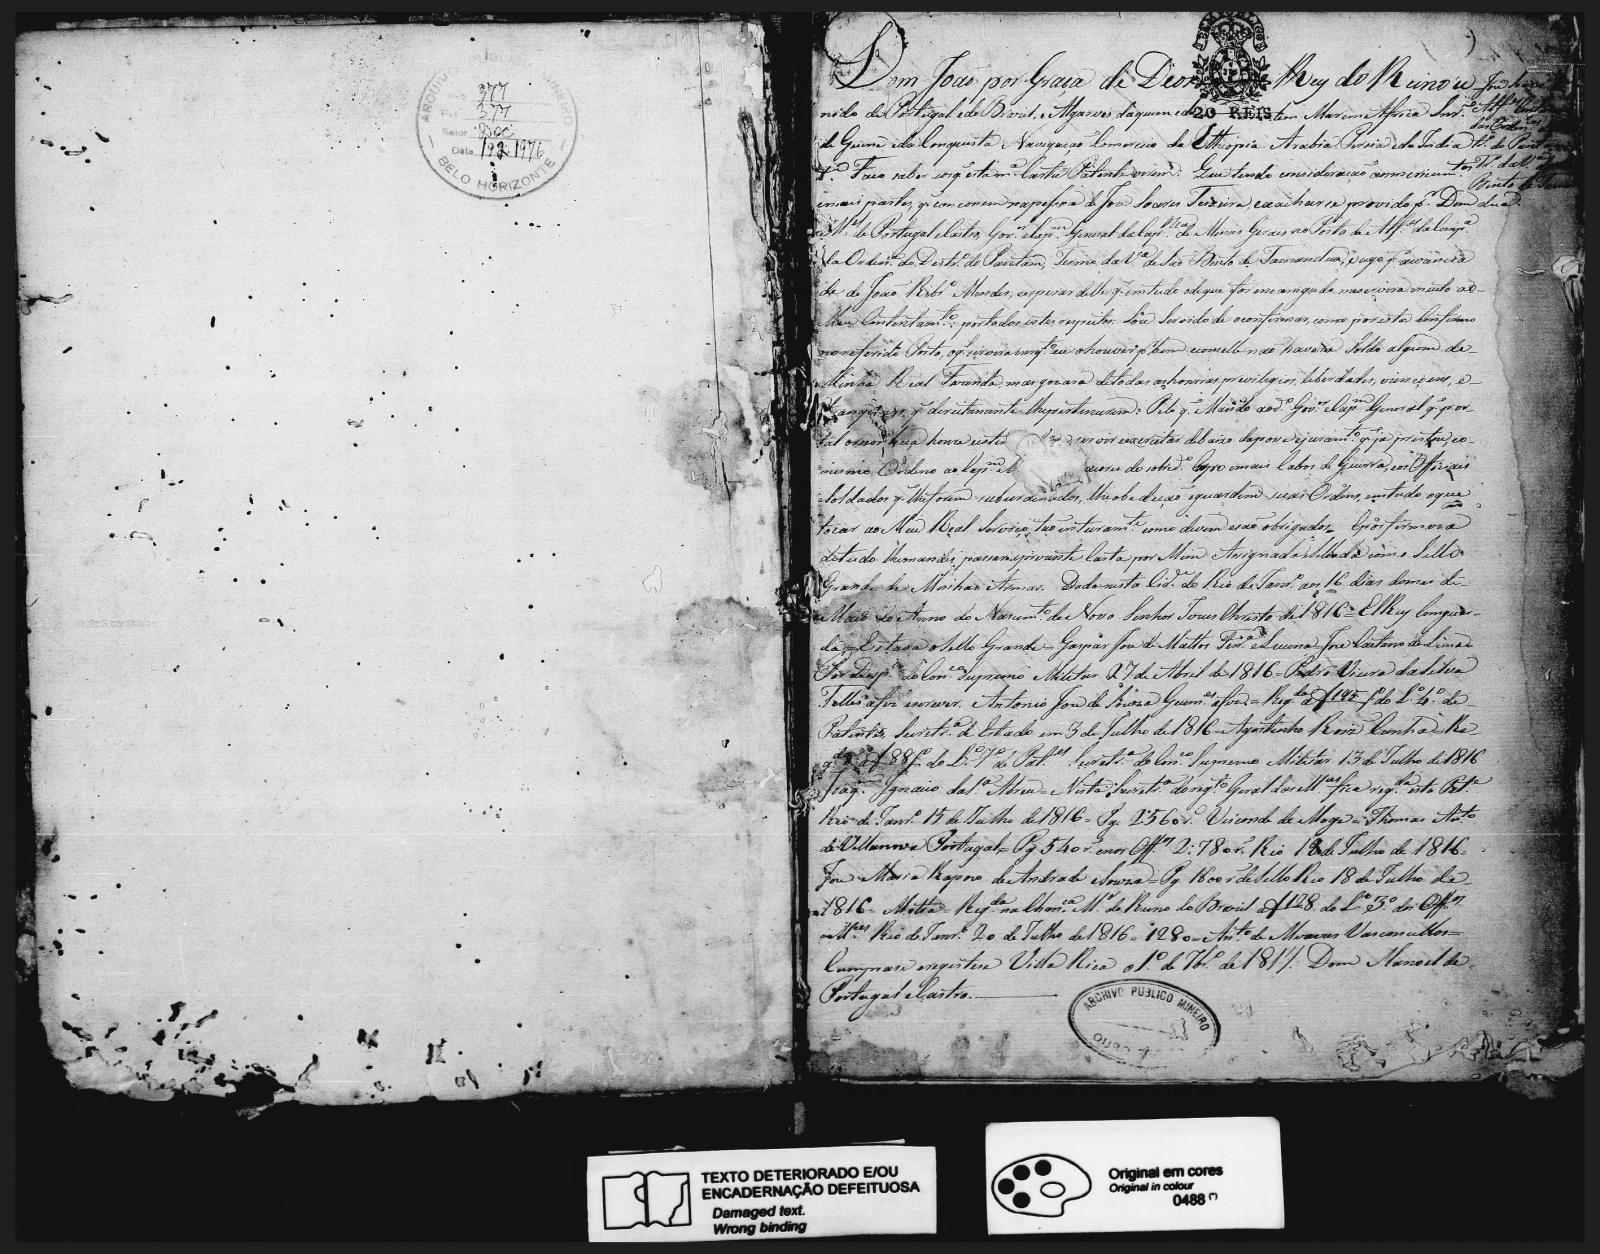 ARQUIVO PÚBLICO MINEIRO
377
Fl. 377
Setor Doc
Data 1976
BELO HORIZONTE
20 REIS
Dom João por Graça de Deos Rey do Reino u
nido de Portugal e do Brazil, e Algarves daquem e dalem Mar em Africa Snr.
de Guiné e da Conquista Navegação Comercio da Ethiopia Arabia Persia e da India
Faço saber aos q esta m.ª Carta Patente virem: Que tendo consideração ao merecim.to
e mais partes, q concorrem na pessoa de Joze Soares Teixeira, e a achar-se provido p.r Dom
M.el de Portugal e Castro, Gov.or e Cap.m General da Cap.nia de Minas Geraes no Posto de Alf.es da Comp.ª
da Orden.ª do Destr.º do Termo da V.ª de São Bento de Tamanduá, vago
de João Rib.º Mendes, e esperar delle q em tudo o de que for encarregado me servirá muito ao
Meu Contentam.to: por todos estes respeitos: Sou Servido de o confirmar, como por esta Confirmo
no referido Posto, o q servirá emq.to eu o houver p.r bem e com elle não haverá Soldo algum de
Minha Real Fazenda, mas gozará de todas as honras, privilegios, liberdades, izençoens, e
q direitamente lhe pertencerem: Pelo q Mando ao d.º Gov.or e Cap.m General q por
tal o reconheça honre estime servir e exercitar debaixo da posse e juram.to q já prestou, e o
mesmo Ordeno ao Cap.m M do sobred.º Corpo e mais Cabos de Guerra, e os Officiaes
Soldados q lhe forem subordinados, lhe obedeção e guardem suas Ordens, em tudo o que
tocar ao Meu Real Serviço, tão inteiram.te como devem e são obrigados = E por firmeza
de tudo lhe mandei passar a prezente Carta por Mim Assignada e Sellada com o Sello
Grande de Minhas Armas. Dada nesta Cid.e do Rio de Janr.º aos 16 dias do mes de
Maio do Anno do Nascim.to de Nosso Senhor Jesus Christo de 1816 = El Rey Com guar-
da = Estava o Sello Grande = Gaspar Joze de Mattos Ferr.ª e Lucena = Joze Caetano de Lima =
Por Desp.º do Con.º Supremo Militar 27 de Abril de 1816 = Pedro Vieira da Silva
Telles a fez escrever. Antonio Joze de Souza Guim.es a fez = Reg.da a f 195 do L.º 4.º de
Patentes, Secretr.ª de Estado em 3 de Julho de 1816 = Agostinho Roiz Cunha = Re
g.da a f 88 do L.º 7.º de Pat.es Secretr.ª do Con.º Supremo Militar 13 de Julho de 1816
Joaq.m Ignacio da S.ª Abreu = Nesta Secretr.ª do reg.to Geral das M.ces fica reg.da esta Pat.e
Rio de Janr.º 15 de Julho de 1816 = Pg. 2560 r.s Visconde de Magé = Thomas Ant.º
de Villanova Portugal = Pg 540 r.s e nos Off.es 2:780 r.s Rio 18 de Julho de 1816 =
Joze Maria Rapozo de Andrade e Souza = Pg. 1600 r.s de Sello Rio 18 de Julho de
1816 = Motta = Reg.da na Chan.ca M.or do Reino do Brazil a f 128 do L.º 3.º dos Off.os
e M.ces Rio de Janr.º 20 de Julho de 1816 = 1280 = Ant.º de Vasconcellos =
Cumpra-se e registe-se Villa Rica o 1.º de 7br.º de 1817. Dom Manoel de
Portugal e Castro.
ARCHIVO PUBLICO MINEIRO
OURO
TEXTO DETERIORADO E/OU
ENCADERNAÇÃO DEFEITUOSA
Damaged text.
Wrong binding
Original em cores
Original in colour
0488 (*)